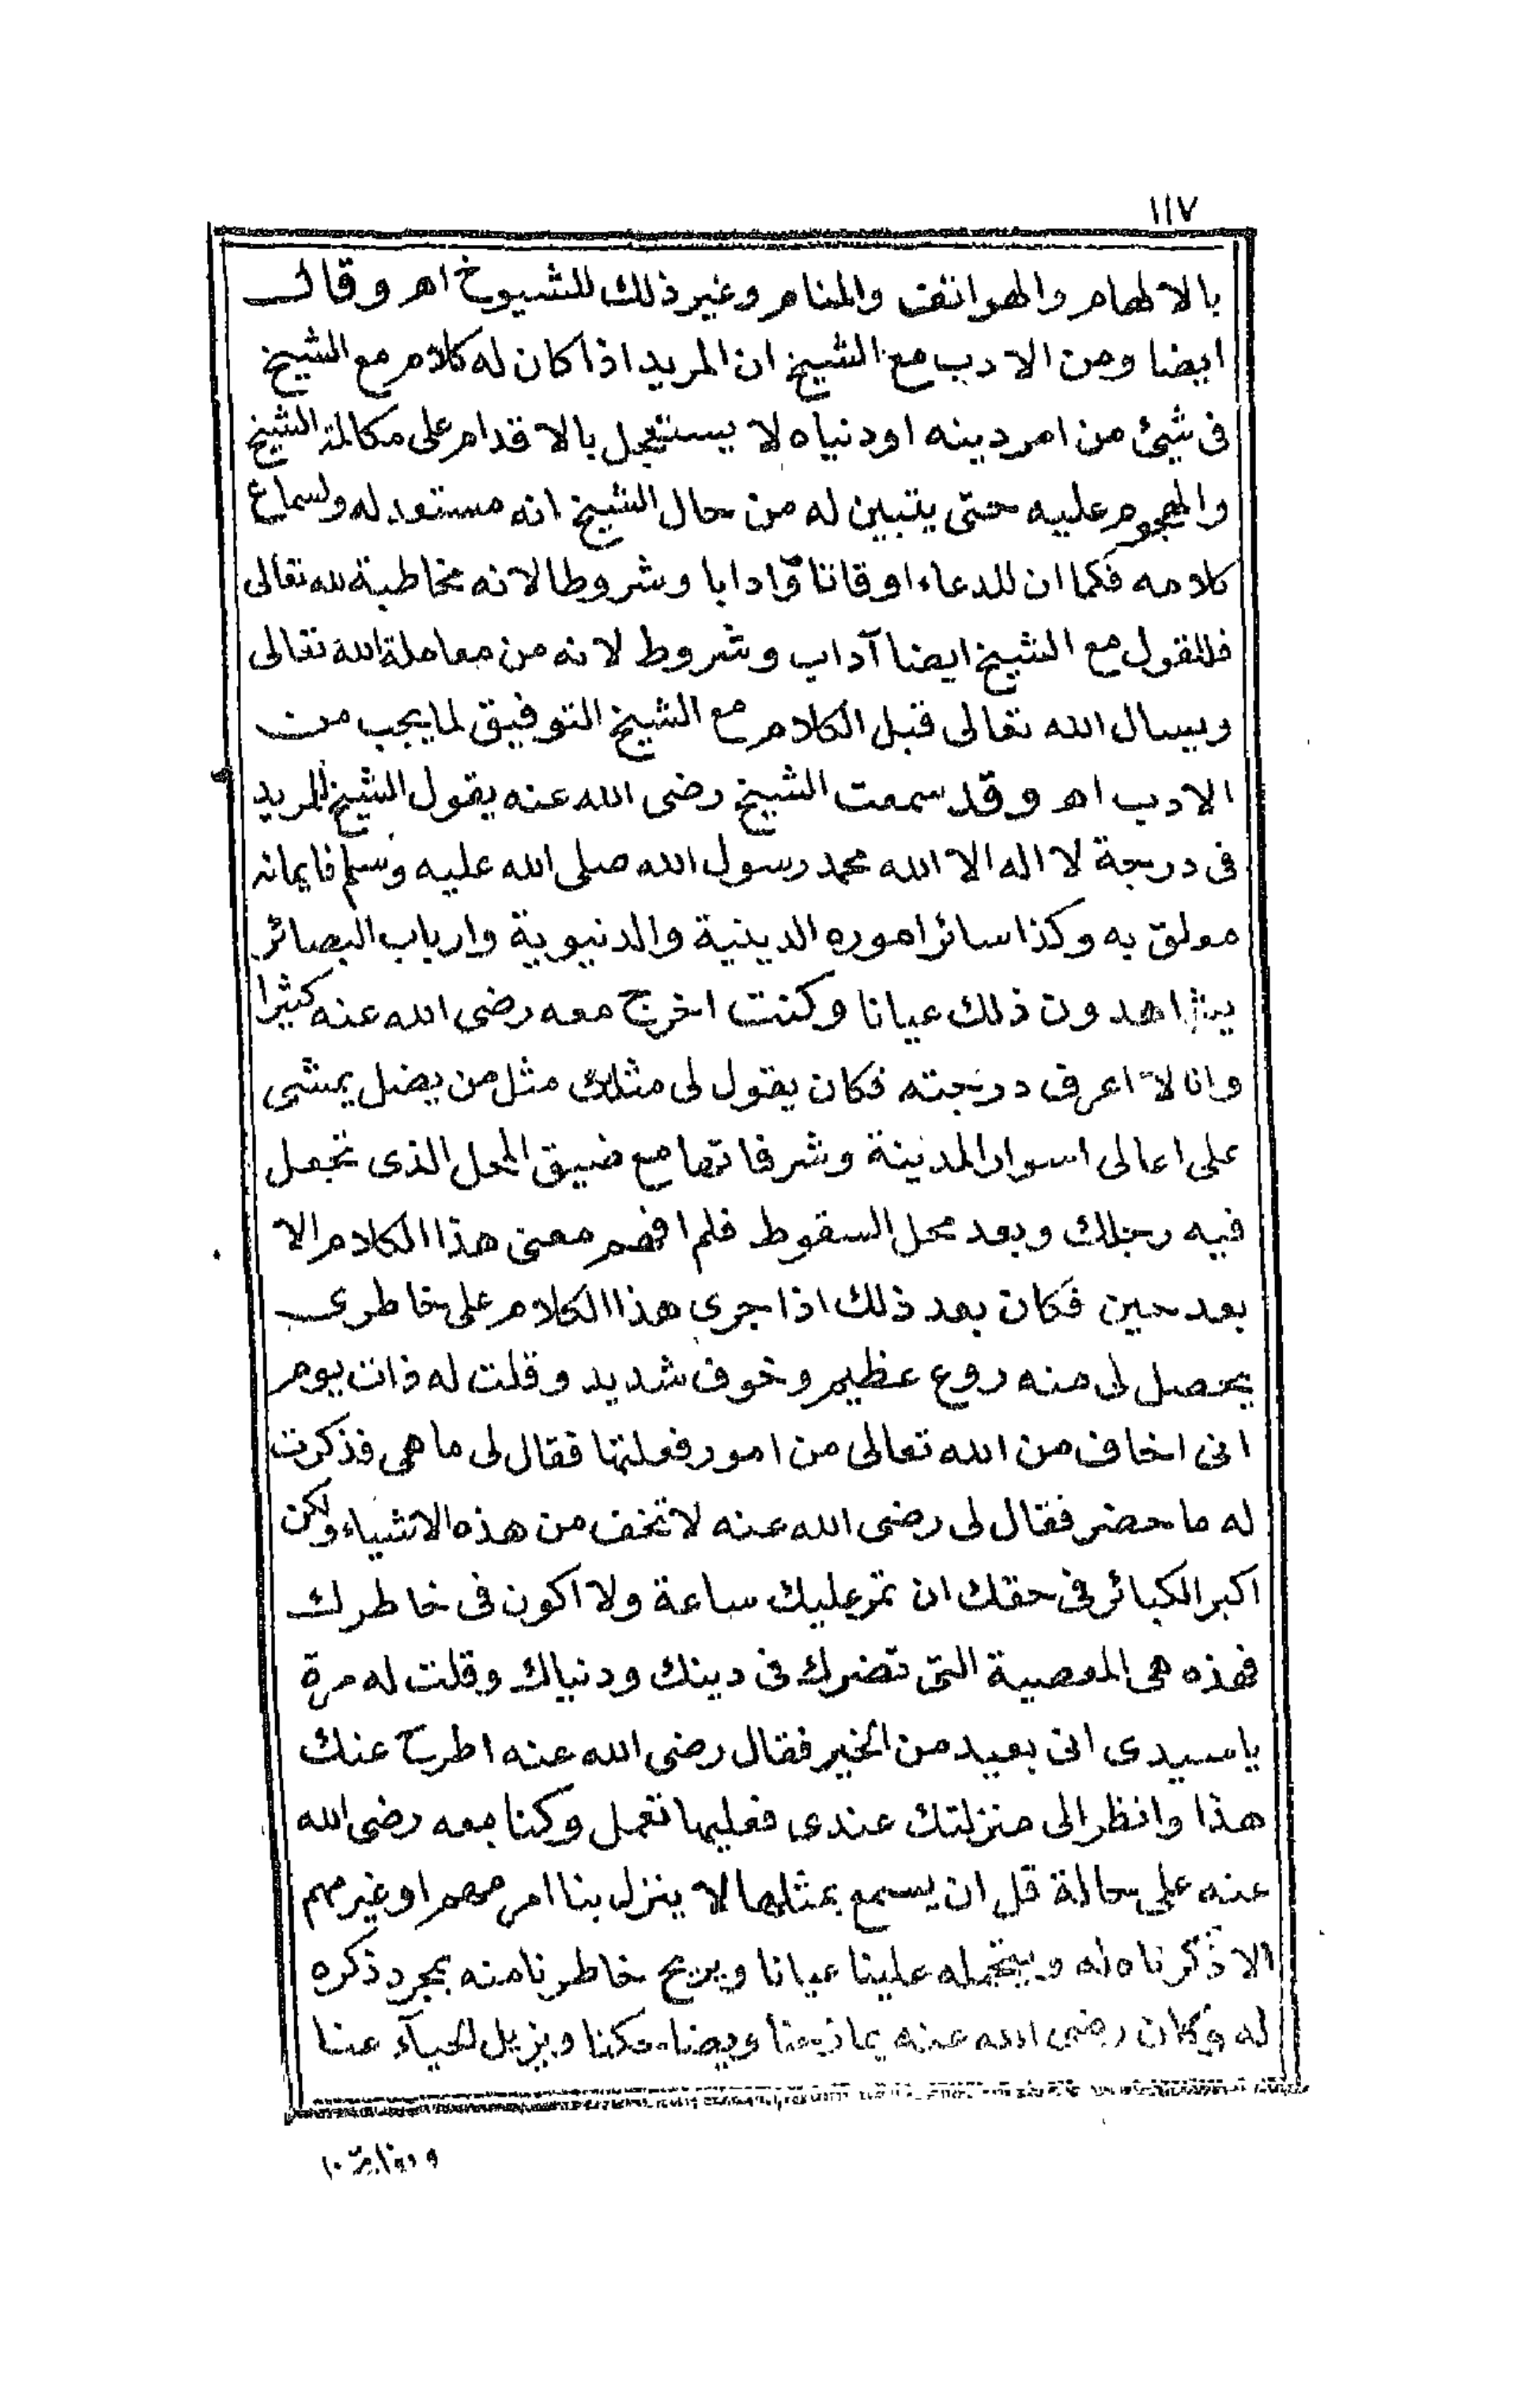 ١١٧
بالالهام والهواتف والمنام وغير ذلك للشيوخ اهـ وقال
ايضا ومن الادب مع الشيخ ان المريد اذا كان له كلام مع الشيخ
فى شيئ من امر دينه او دنياه لا يستعجل بالاقدام على مكالمة الشيخ
والهجوم عليه حتى يتبين له من حال الشيخ انه مستعد له ولسماع
كلامه فكما ان للدعاء اوقاتا وآدابا وشروطا لانه مخاطبة لله تعالى
فللقول مع الشيخ ايضا آداب وشروط لانه من معاملة الله تعالى
ويسال الله تعالى قبل الكلام مع الشيخ التوفيق لما يجب من
الادب اهـ وقد سمعت الشيخ رضى الله عنه يقول الشيخ للمريد
فى درجة لا اله الا الله محمد رسول الله صلى الله عليه وسلم فايمانه
معلق به وكذا سائر اموره الدينية والدنيوية وارباب البصائر
يشاهدون ذلك عيانا وكنت اخرج معه رضى الله عنه كثيرا
وانا لا اعرف درجته فكان يقول لى مثلك مثل من يضل يمشى
على اعالى اسوار المدينة وشرفاتها مع ضيق المحل الذى تجعل
فيه رجلك وبعد محل السقوط فلم افهم معنى هذا الكلام الا
بعد حين فكان بعد ذلك اذا جرى هذا الكلام على خاطرى
يحصل لى منه روع عظيم وخوف شديد وقلت له ذات يوم
انى اخاف من الله تعالى من امور فعلتها فقال لى ما هى فذكرت
له ما حضر فقال لى رضى الله عنه لا تخف من هذه الاشياء ولكن
اكبر الكبائر فى حقك ان تمر عليك ساعة ولا اكون فى خاطرك
فهذه هى المعصية التى تضرك فى دينك ودنياك وقلت له مرة
يا سيدى انى بعيد من الخير فقال رضى الله عنه اطرح عنك
هذا وانظر الى منزلتك عندى فعليها تعمل وكنا معه رضى الله
عنه على حالة قل ان يسمع بمثلها لا ينزل بنا امر مهم او غير مهم
الا ذكرناه له ويتحمله علينا عيانا ويريح خاطرنا منه بمجرد ذكره
له وكان رضى الله عنه يمازحنا ويضاحكنا ويزيل الحياء عنا